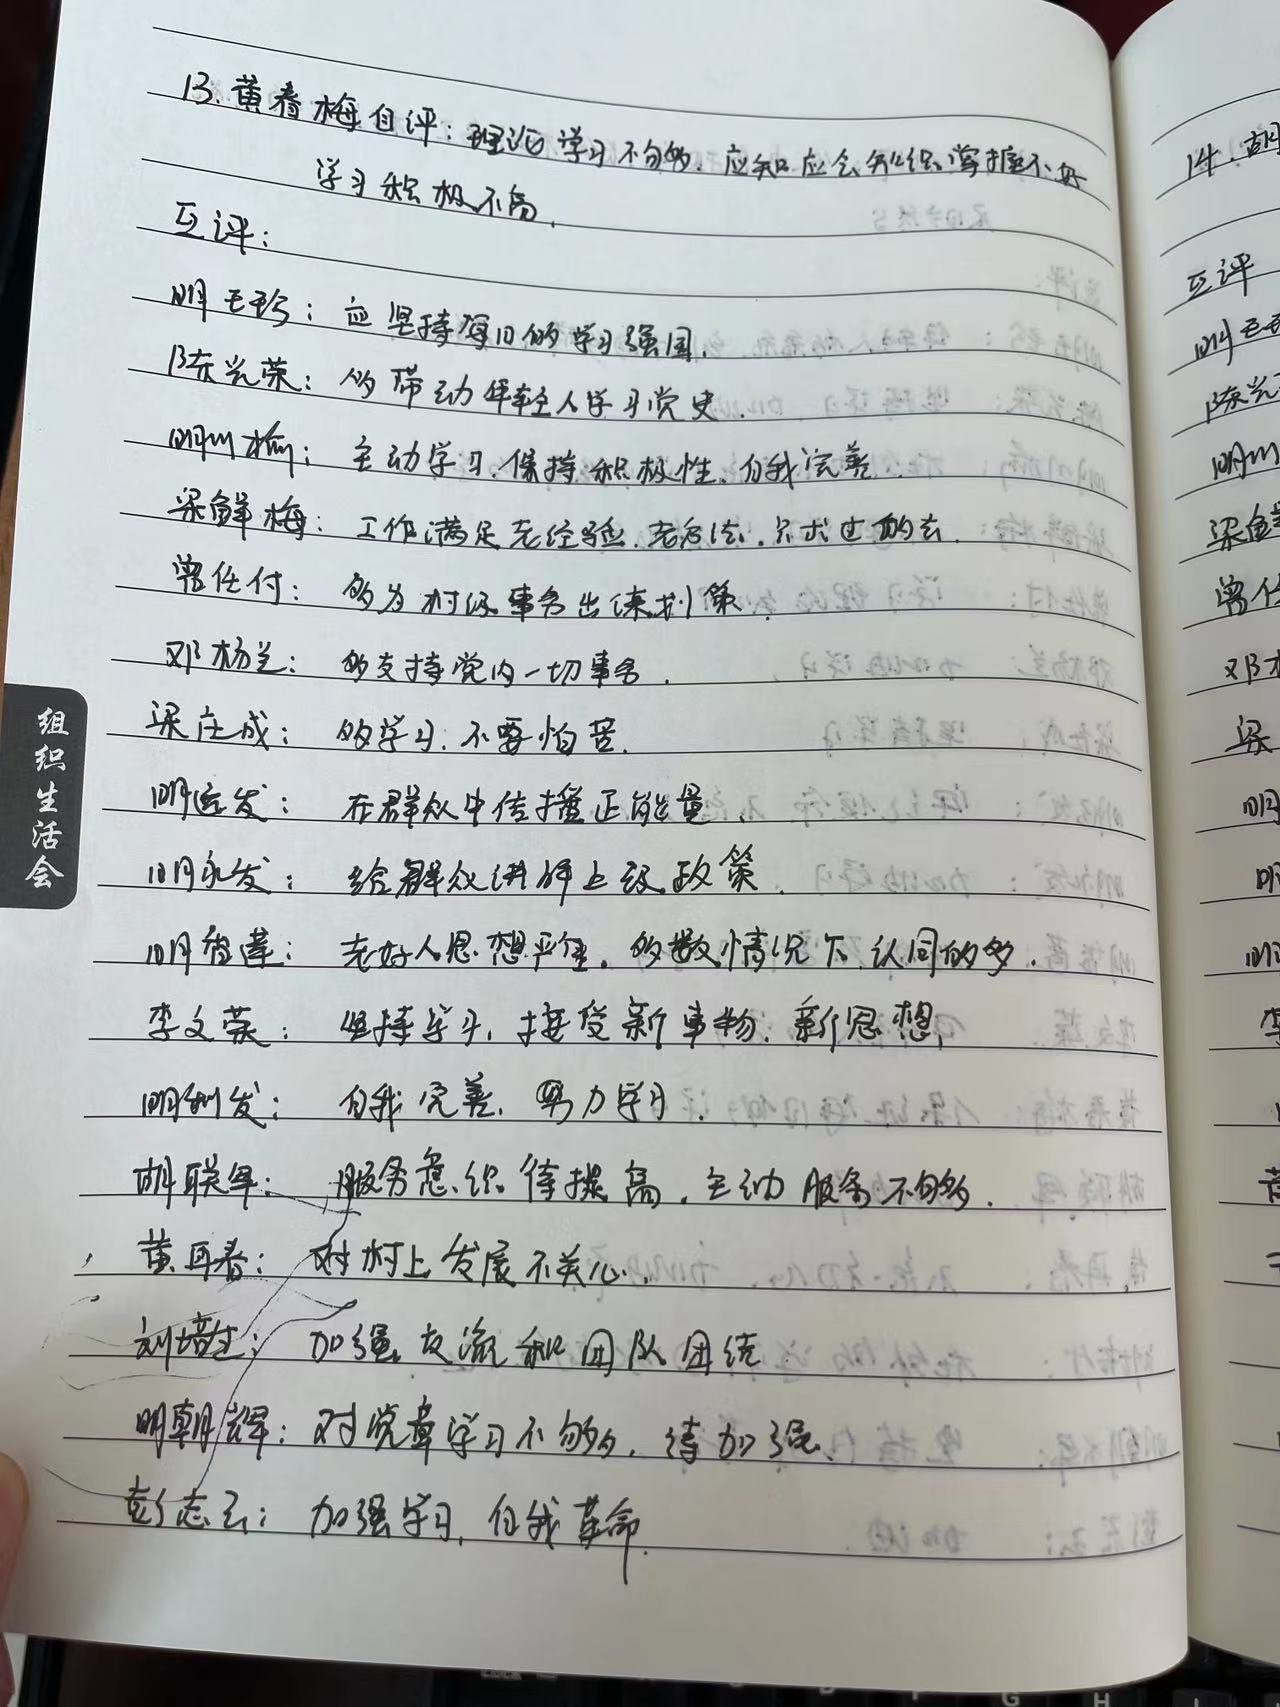 13. 黄春梅自评：理论学习不够，应知应会知识掌握不好
学习积极不高。
互评：
明玉珍：应坚持每日的学习强国。
陈光荣：多带动年轻人学习党史。
明川榆：主动学习，保持积极性，自我完善。
梁鲜梅：工作满足老经验，老方法，只求过的去。
曾任付：多为村级事务出谋划策。
邓杨兰：多支持党内一切事务。
梁庄成：多学习，不要怕苦。
明远发：在群众中传播正能量。
明永发：给群众讲解上级政策。
明香莲：老好人思想严重，多数情况下，认同的多。
李文荣：坚持学习，接受新事物，新思想。
明剑发：自我完善，努力学习。
胡联军：服务意识待提高，主动服务不够。
黄再春：对村上发展不关心。
刘培生：加强交流和团队团结
明朝辉：对党章学习不够，待加强。
彭志云：加强学习，自我革命。
组织生活会
14. 胡
互评
梁